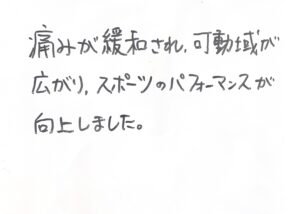 痛みが緩和され,可動域が
広がり,スポーツのパフォーマンスが
向上しました。